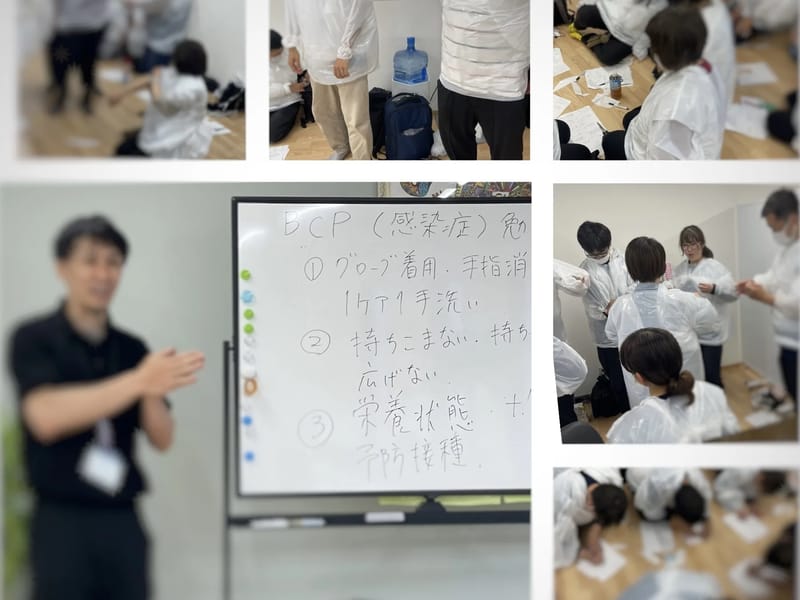 BCP (感染症) 勉
① グローブ着用・手指消
1ケア1手洗い
② 持ちこまない・持ち
広げない.
③ 栄養状態・
予防接種.